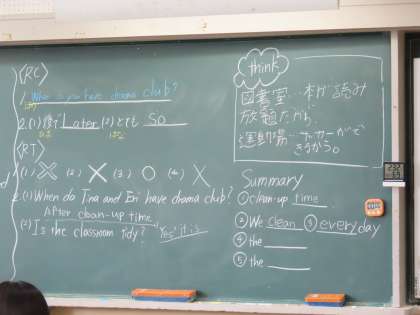 〈RC〉
1. When do you have drama club?
2. (1) 後で Later (2) とても So
〈RT〉
1. (1) X (2) X (3) ○ (4) X
2. (1) When do Tina and Eri have drama club?
After clean-up time
(2) Is the classroom tidy? Yes, it is
think
図書室…本が読み
放題だから。
運動場…サッカーがで
きるから。
Summary
① clean-up time
② We clean ③ every day
④ the
⑤ the